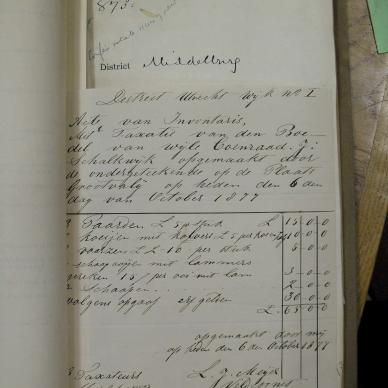 873.
District Middelburg
District Utrecht Wijk No I
Acte van Inventaris,
Met Taxatie van den Boe-
del van wyle Coenraad J:
Schalkwyk opgemaakt door
de ondergeteekenden op de Plaats
Grootvaly op heden den 6 den
dag van October 1877
Paarden £ 5 p stuk £ 15-0-0
koeijen met kalvers £5 per koe 10-0-0
vaarzen £ 2-10- per stuk 5-0-0
schaapooijen met lammers
15/- per ooi met lam 3-0-0
2 Schaapen 2-0-0
volgens opgaaf 30-0-0
£ 65-0-0
opgemaakt door mij
op heden den 6 den October 1877
Taxateurs